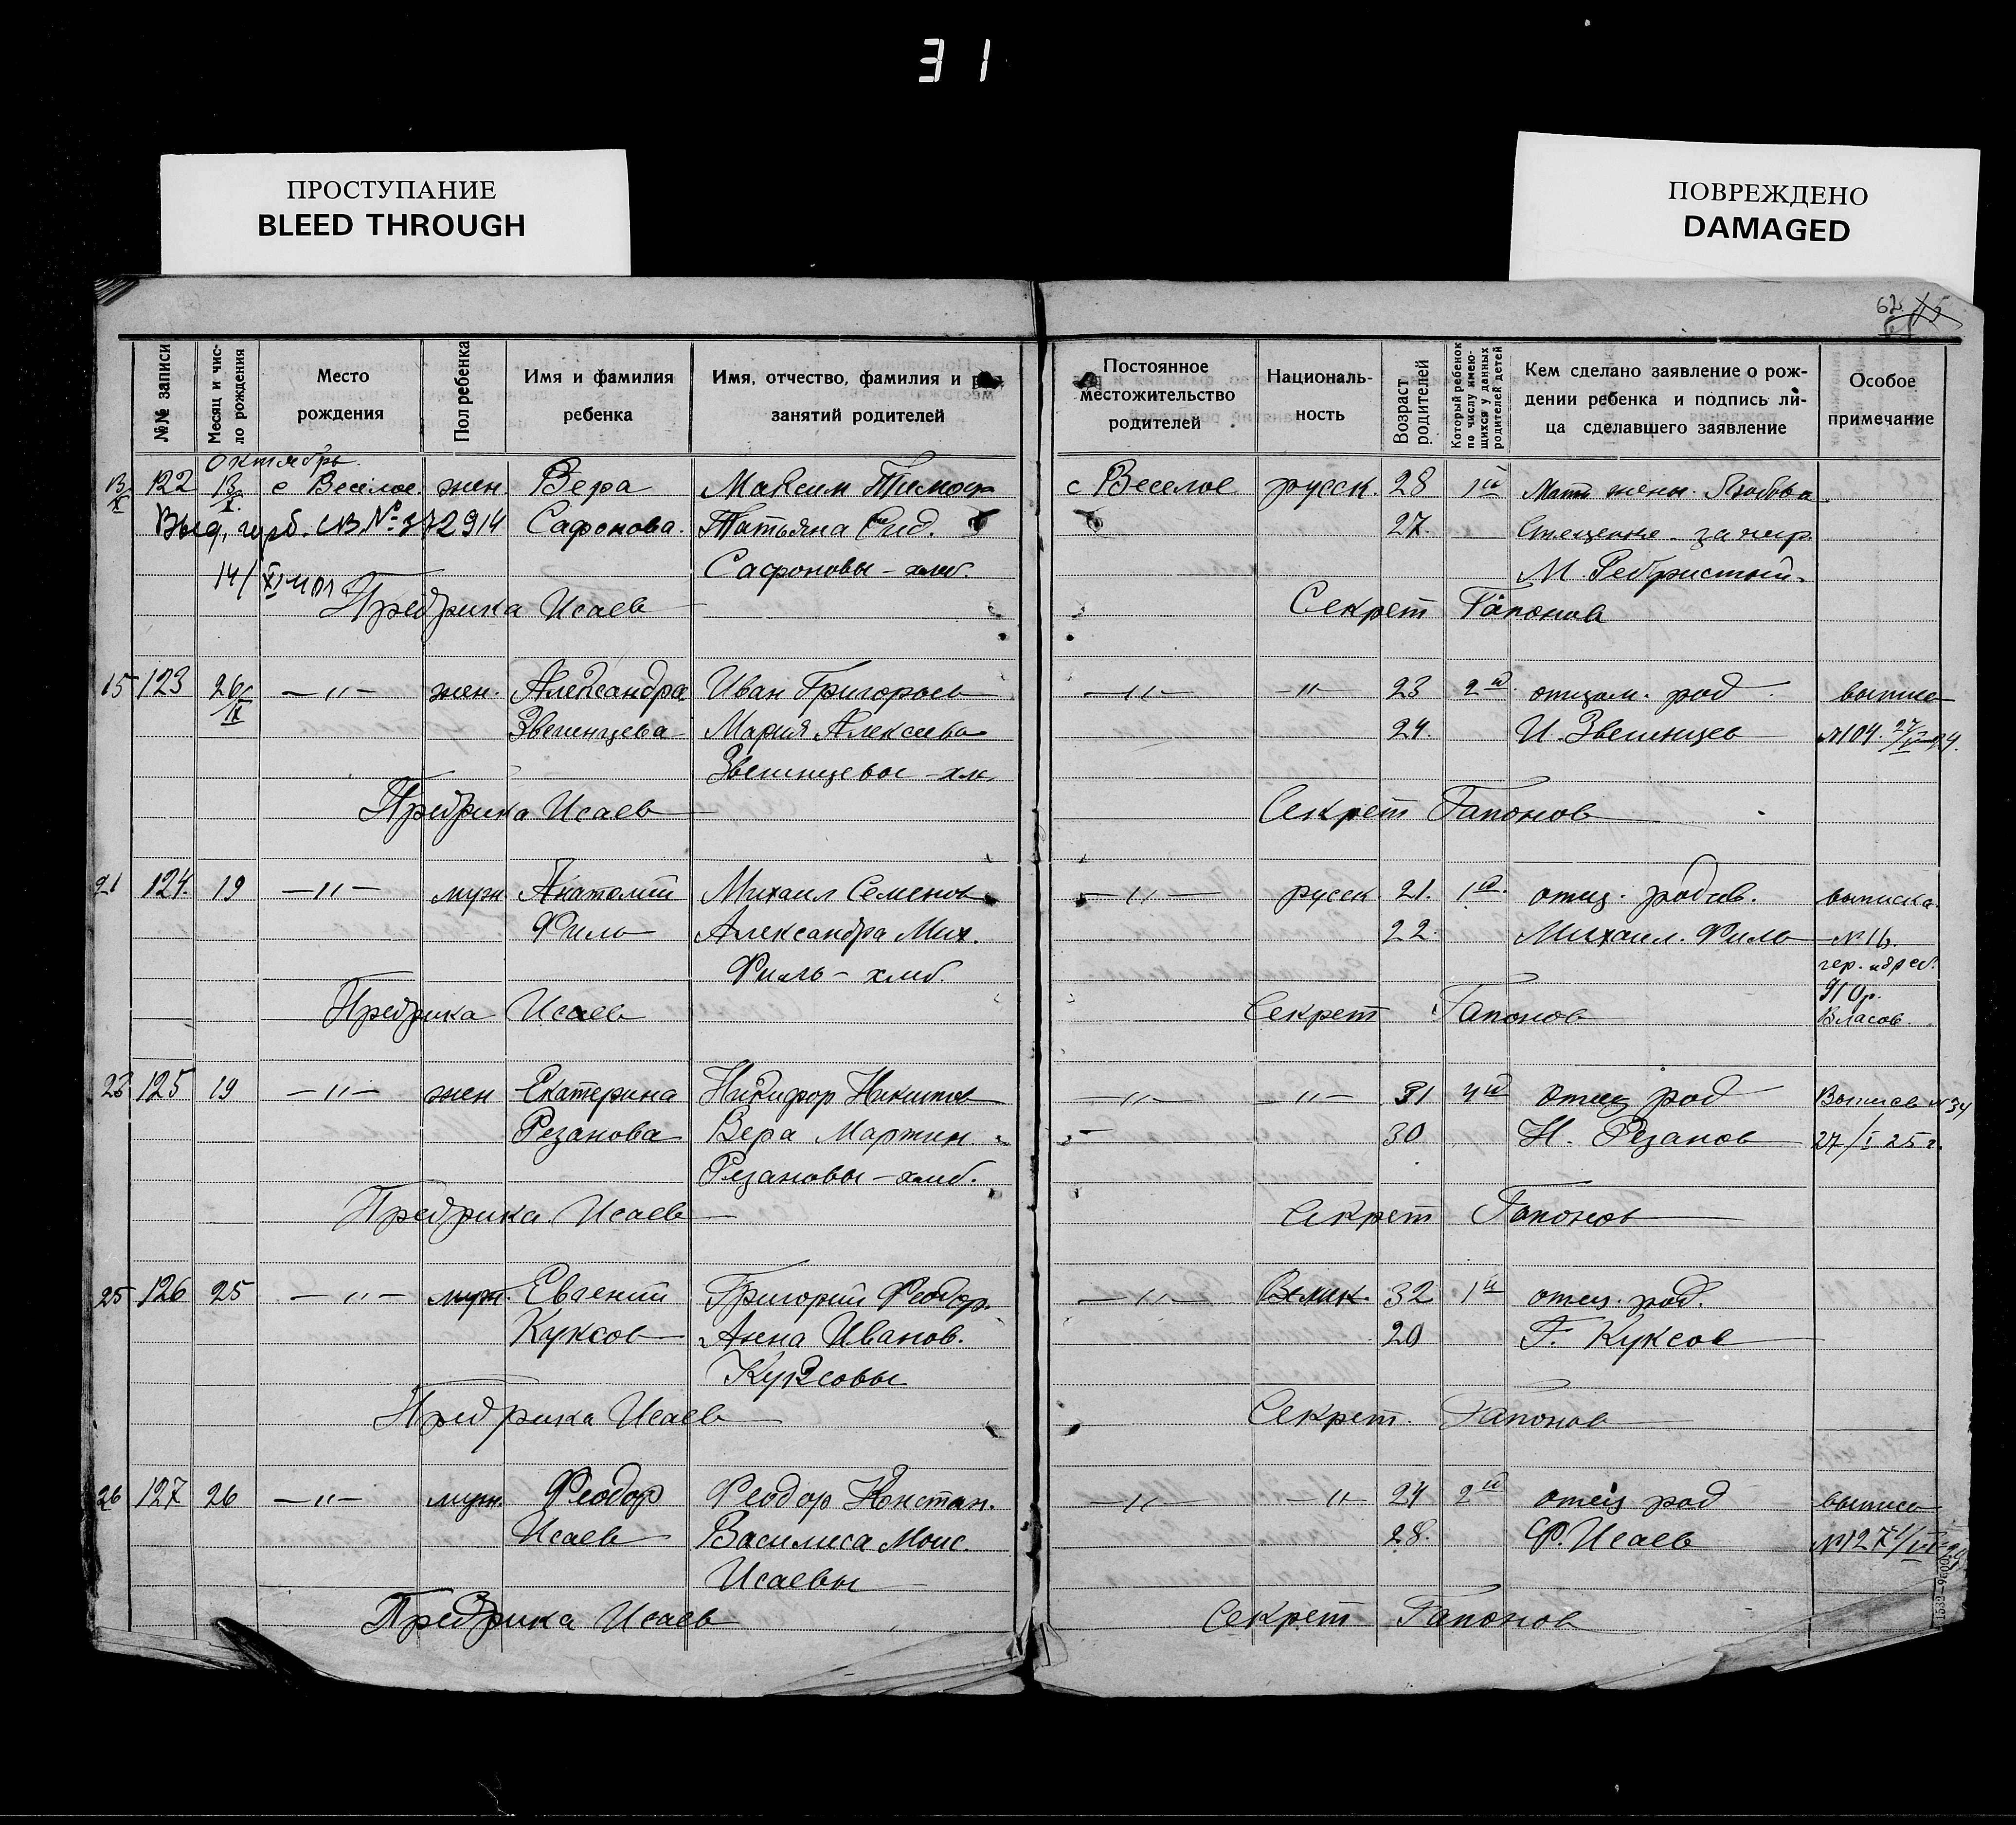 31
ПРОСТУПАНИЕ
BLEED THROUGH
ПОВРЕЖДЕНО
DAMAGED
62
№№ записи
Месяц и чис-
ло рождения
Место
рождения
Пол ребенка
Имя и фамилия
ребенка
Имя, отчество, фамилия и
занятий родителей
Постоянное
местожительство
родителей
Националь-
ность
Возраст
родителей
Который ребенок
по числу имею-
щихся у данных
родителей детей
Кем сделано заявление о рож-
дении ребенка и подпись ли-
ца сделавшего заявление
Особое
примечание
октябрь
13/X 122 13/X с Веселое. жен. Вера Максим Тимоф с Веселое русск. 28 1й
№ 372914 Сафонова. Татьяна 27.
14/XI Сафоновы - хлеб. М. Ребристый.
Предрика Исаев Секрет Гапонов
15 123 26/IX —"— жен. Александра Иван Григорьев —"— —"— 23 2й род. выпись
Звегинцева Мария Алексеева 24. И. Звегинцев №104.
Звегинцевы - хл.
Предрика Исаев Секрет Гапонов
21 124. 19 —"— муж. Анатолий Михаил Семенов —"— русск 21. 1й. отец. выписка
Филь Александра Мих. 22. Михаил. Филь №16.
Филь - хлеб.
Власов
Предрика Исаев Секрет Гапонов
23 125 19 —"— жен Екатерина Никифор Никитов —"— —"— 31 4й отец род Выпись №34
Резанова Вера Мартин 30 Н. Резанов 27/I 25 г.
Резановы - хлеб.
Предрика Исаев Секрет Гапонов
25 126 25 —"— муж. Евгений Григорий Феодор. —"— Велик. 32 1й отец. род.
Куксов Анна Иванов. 20 Г. Куксов
Куксовы
Предрика Исаев Секрет. Гапонов
26 127 26 —"— муж. Феодор Феодор Констан. —"— —"— 24 2й отец род выпись
Исаев Василиса Моис. 28. Ф. Исаев
Исаевы
Предрика Исаев Секрет Гапонов